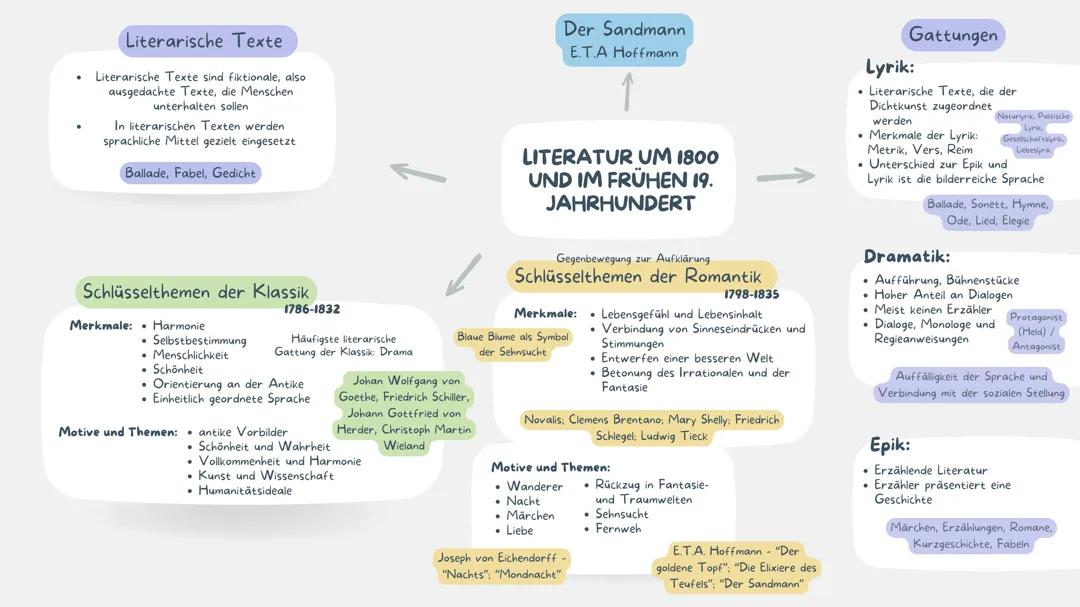 Literarische Texte
• Literarische Texte sind fiktionale, also
ausgedachte Texte, die Menschen
unterhalten sollen
• In literarischen Texten werden
sprachliche Mittel gezielt eingesetzt
Ballade, Fabel, Gedicht
Der Sandmann
E.T.A Hoffmann
LITERATUR UM 1800
UND IM FRÜHEN 19.
JAHRHUNDERT
Gattungen
Lyrik:
• Literarische Texte, die der
Dichtkunst zugeordnet
werden
• Merkmale der Lyrik:
Metrik, Vers, Reim
• Unterschied zur Epik und
Lyrik ist die bilderreiche Sprache
Naturlyrik, Politische
Lyrik,
Gesellschaftslyrik,
Liebeslyrik
Ballade, Sonett, Hymne,
Ode, Lied, Elegie
Dramatik:
• Aufführung, Bühnenstücke
• Hoher Anteil an Dialogen
• Meist keinen Erzähler
• Dialoge, Monologe und
Regieanweisungen
Protagonist
(Held) /
Antagonist
Auffälligkeit der Sprache und
Verbindung mit der sozialen Stellung
Epik:
• Erzählende Literatur
• Erzähler präsentiert eine
Geschichte
Märchen, Erzählungen, Romane,
Kurzgeschichte, Fabeln
Schlüsselthemen der Klassik
1786-1832
Merkmale:
• Harmonie
• Selbstbestimmung
• Menschlichkeit
• Schönheit
• Orientierung an der Antike
• Einheitlich geordnete Sprache
Häufigste literarische
Gattung der Klassik: Drama
Johan Wolfgang von
Goethe, Friedrich Schiller,
Johann Gottfried von
Herder, Christoph Martin
Wieland
Motive und Themen:
• antike Vorbilder
• Schönheit und Wahrheit
• Vollkommenheit und Harmonie
• Kunst und Wissenschaft
• Humanitätsideale
Gegenbewegung zur Aufklärung
Schlüsselthemen der Romantik
1798-1835
Merkmale:
• Lebensgefühl und Lebensinhalt
• Verbindung von Sinneseindrücken und
Stimmungen
• Entwerfen einer besseren Welt
• Betonung des Irrationalen und der
Fantasie
Blaue Blume als Symbol
der Sehnsucht
Novalis; Clemens Brentano; Mary Shelly; Friedrich
Schlegel; Ludwig Tieck
Motive und Themen:
• Wanderer
• Nacht
• Märchen
• Liebe
• Rückzug in Fantasie-
und Traumwelten
• Sehnsucht
• Fernweh
Joseph von Eichendorff -
"Nachts"; "Mondnacht"
E.T.A. Hoffmann - "Der
goldene Topf"; "Die Elixiere des
Teufels"; "Der Sandmann"